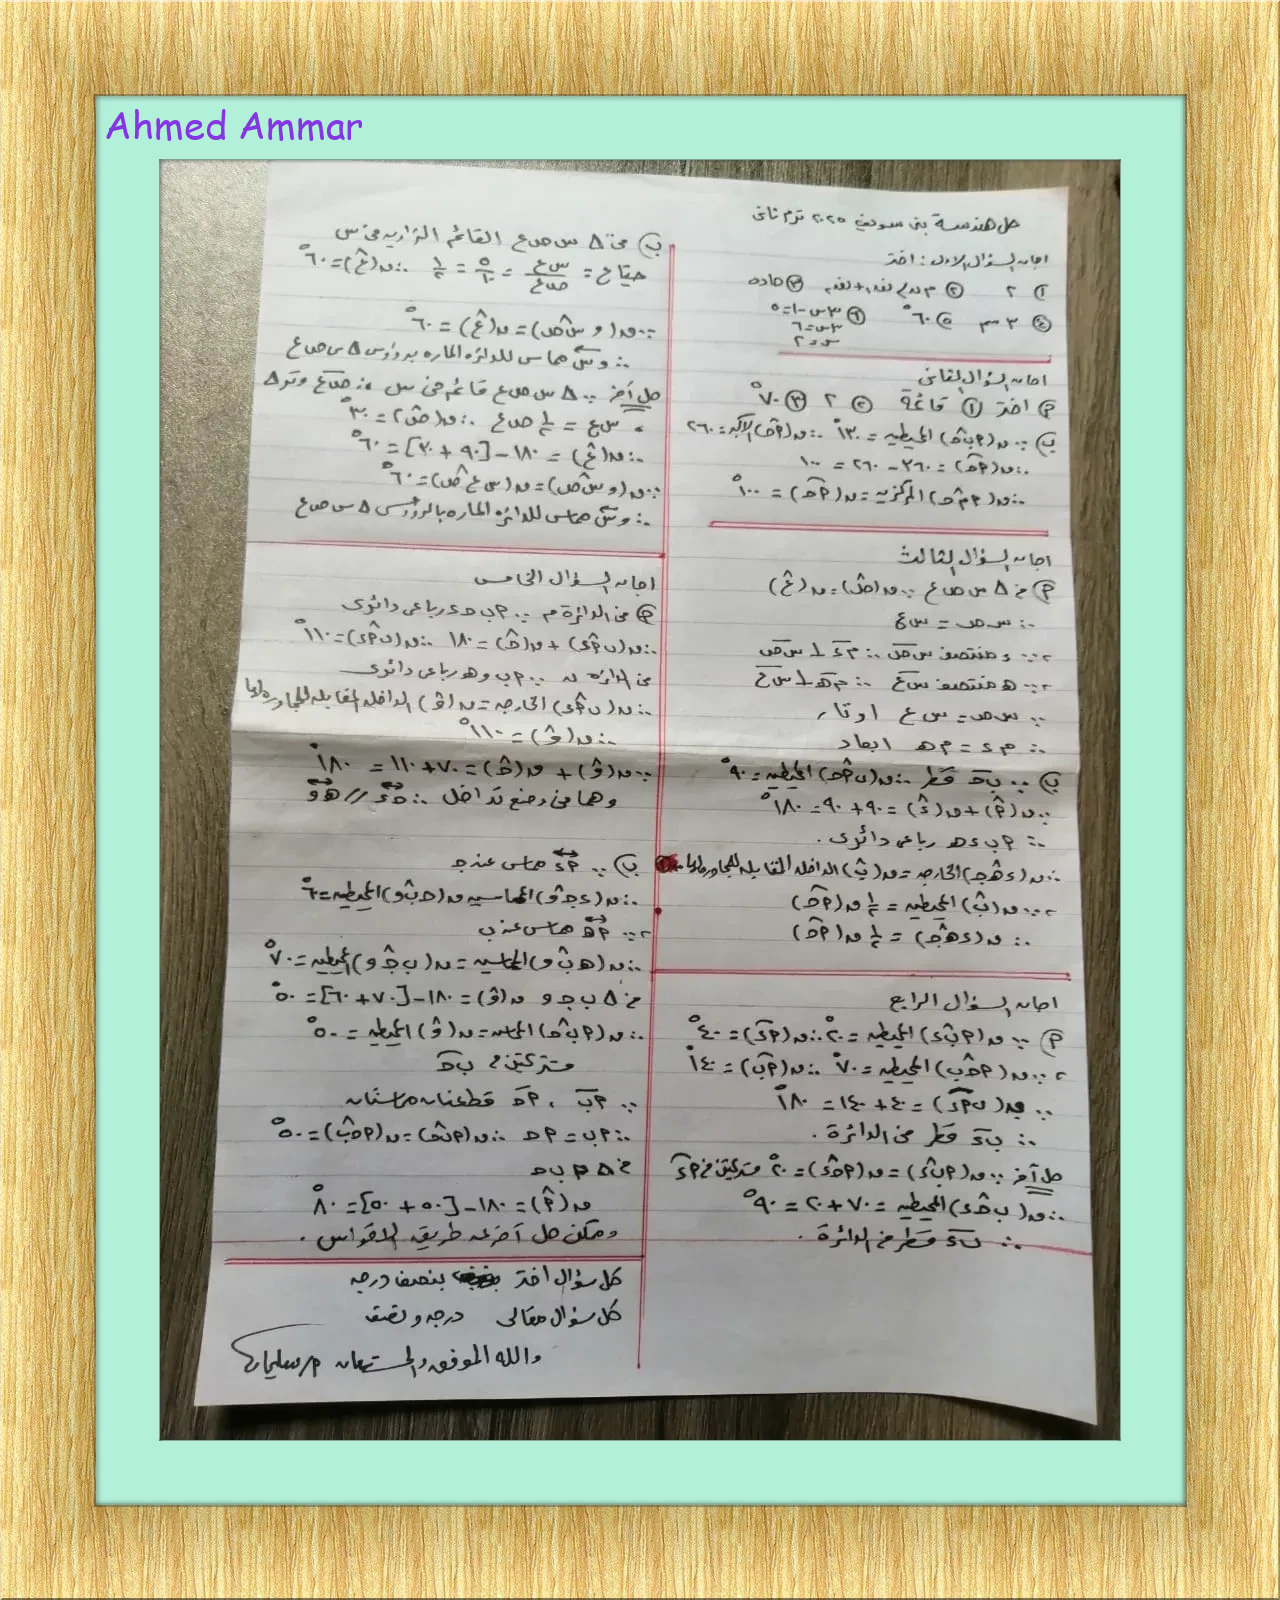 Ahmed Ammar
حل هندسة بنى سويف ٢٠٢٥ ترم ثانى
اجابة السؤال الاول : اختر
① ٢ ② م ∋ نق١ + نق٢ ③ حاده
④ ٣ سم ⑤ ٦٠° ⑥ ٣س - ١ = ٥
٣س = ٦
س = ٢
اجابة السؤال الثانى
أ) اختر ① قائمة ② ٢ ③ ٧٠°
ب) ∵ ق(أب̂ح) المحيطيه = ١٣٠° ∴ ق(أح) الاكبر = ٢٦٠
∴ ق(أح) = ٣٦٠ - ٢٦٠ = ١٠٠
∴ ق(أم̂ح) المركزيه = ق(أح) = ١٠٠°
اجابة السؤال الثالث
أ) فى Δ س ص ع ∵ ق(ص̂) = ق(ع̂)
∴ س ص = س ع
، ∵ ء منتصف س ص ∴ م ء ⊥ س ص
، ∵ ه منتصف س ع ∴ م ه ⊥ س ع
∵ س ص = س ع اوتار
∴ م ء = م ه ابعاد
ب) ∵ ب ح قطر ∴ ق(ب أ̂ ح) المحيطيه = ٩٠°
∵ ق(أ̂) + ق(ء̂) = ٩٠ + ٩٠ = ١٨٠°
∴ أ ب ء ه رباعى دائرى .
∴ ق(ء ه̂ ج) الخارجه = ق(ب̂) الداخله المقابله للمجاوره لها
، ∵ ق(ب̂) المحيطيه = ½ ق(أح)
∴ ق(ء ه̂ ح) = ½ ق(أح)
اجابة السؤال الرابع
أ) ∵ ق(أ ب̂ ء) المحيطيه = ٢٠° ∴ ق(أء) = ٤٠°
، ∵ ق(أ ح̂ ب) المحيطيه = ٧٠° ∴ ق(أب) = ١٤٠°
∵ ق(ب أ ء) = ٤٠ + ١٤٠ = ١٨٠°
∴ ب ء قطر فى الدائرة .
حل آخر ∵ ق(أ ب̂ ء) = ق(أ ح̂ ء) = ٢٠° مشتركتين فى أ ء
∴ ق(ب ح̂ ء) المحيطيه = ٧٠ + ٢٠ = ٩٠°
∴ ب ء قطر فى الدائرة .
ب) فى Δ س ص ع القائم الزاويه فى س
حتا ع = س ع / ص ع = ٥/١٠ = ½ ∴ ق(ع̂) = ٦٠°
∵ ق(و س̂ ص) = ق(ع̂) = ٦٠°
∴ و س مماس للدائره الماره برؤوس Δ س ص ع
حل آخر ∵ Δ س ص ع قائم فى س ∴ ص ع وتر Δ
، س ع = ½ ص ع ∴ ق(ص̂) = ٣٠°
∴ ق(ع̂) = ١٨٠ - [٩٠ + ٣٠] = ٦٠°
∵ ق(و س̂ ص) = ق(س ع̂ ص) = ٦٠°
∴ و س مماس للدائره الماره بالرؤوس Δ س ص ع
اجابة السؤال الخامس
أ) فى الدائرة م ∵ أ ب ح ء رباعى دائرى
∴ ق(ب أ̂ ء) + ق(ح̂) = ١٨٠ ∴ ق(ب أ̂ ء) = ١١٠°
فى الدائره ن ∵ أ ب و ه رباعى دائرى
∴ ق(ب أ̂ ء) الخارجه = ق(و̂) الداخله المقابله للمجاوره لها
∴ ق(و̂) = ١١٠°
∵ ق(و̂) + ق(ح̂) = ٧٠ + ١١٠ = ١٨٠°
وهما فى وضع تداخل ∴ ح ء // ه و
ب) ∵ أ ء مماس عند ج
∴ ق(ء ج̂ و) المماسيه = ق(ح ب̂ و) المحيطيه = ٦٠°
، ∵ أ ه مماس عند ب
∴ ق(ه ب̂ و) المماسيه = ق(ب ج̂ و) المحيطيه = ٧٠°
فى Δ ب ج و ق(و̂) = ١٨٠ - [٧٠ + ٦٠] = ٥٠°
∴ ق(أ ب̂ ح) المماسيه = ق(و̂) المحيطيه = ٥٠
مشتركتين فى ب ح
∵ أ ب ، أ ح قطعتان مماستان
∴ أ ب = أ ح ∴ ق(أ ب̂ ح) = ق(أ ح̂ ب) = ٥٠°
فى Δ أ ب ح
ق(أ̂) = ١٨٠ - [٥٠ + ٥٠] = ٨٠°
ويمكن حل آخر عن طريق الاقواس .
كل سؤال اختر بنصف درجه
كل سؤال مقالى درجه ونصف
والله الموفق والمستعان م/سليمان